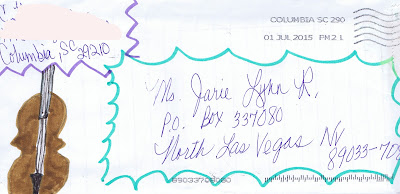 Columbia, SC 29210
COLUMBIA SC 290
01 JUL 2015 PM 2 L
Ms. Jarie Lynn R.
P.O. Box 337080
North Las Vegas NV
89033-708
89033708080